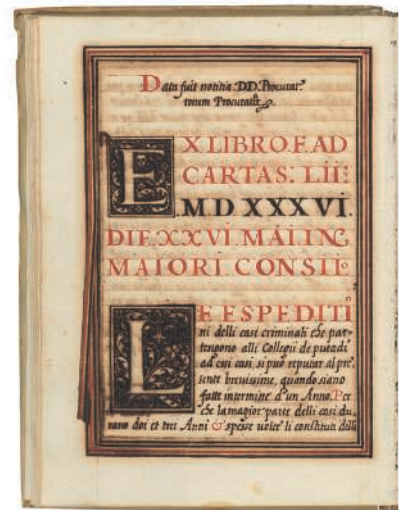 Data fuit notitia DD. Procurat:
torum Procuratiȩ
EX LIBRO. F. AD
CARTAS: LII:
.M.D XXXVI.
DIE. XXVI. MAI. IN
MAIORI. CONSII°
LE ESPEDITI
ni delli casi criminali che par-
tengono alli Collegii deputadi
ad essi casi, si può reputar al pre
sente brevissime, quando siano
fatte in termine d'un Anno. Per
che la magior parte delli casi du,
rano doi et tre Anni & spesse volte li constituti delli